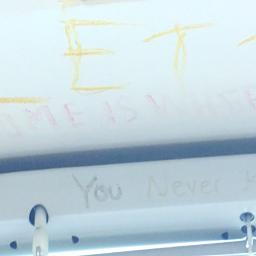 ET
OME IS WHE
You Never